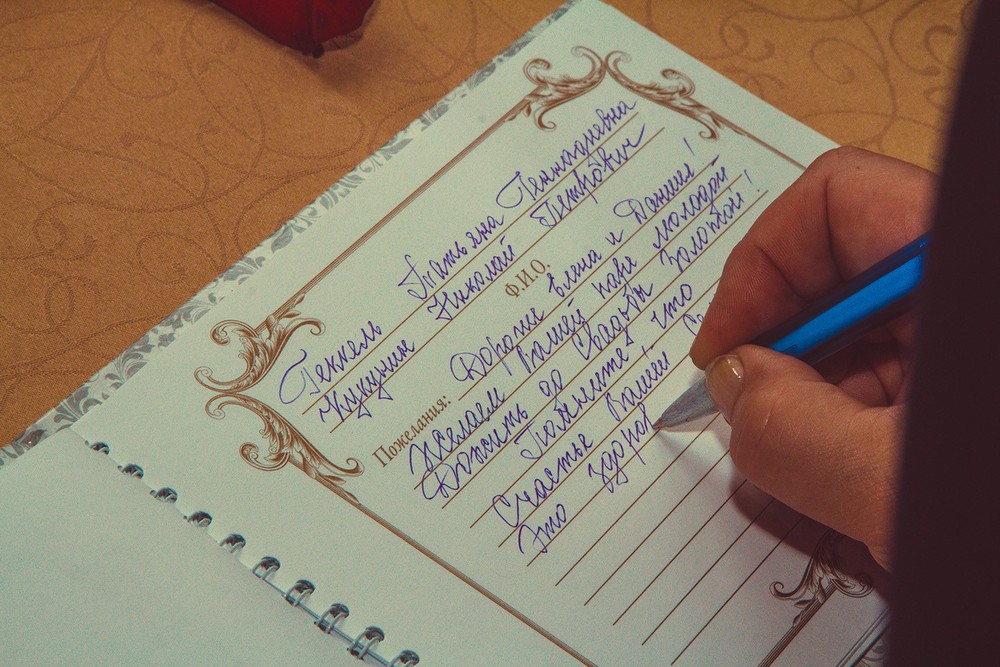 Геккель Татьяна Геннадиевна
Кукунин Николай Петрович
Ф.И.О.
Пожелания: Дорогие Елена и Даниил!
Желаем Вашей паре молодой
Дожить до Свадьбы Золотой!
Помните, что
Счастье Ваше!
Это здоров